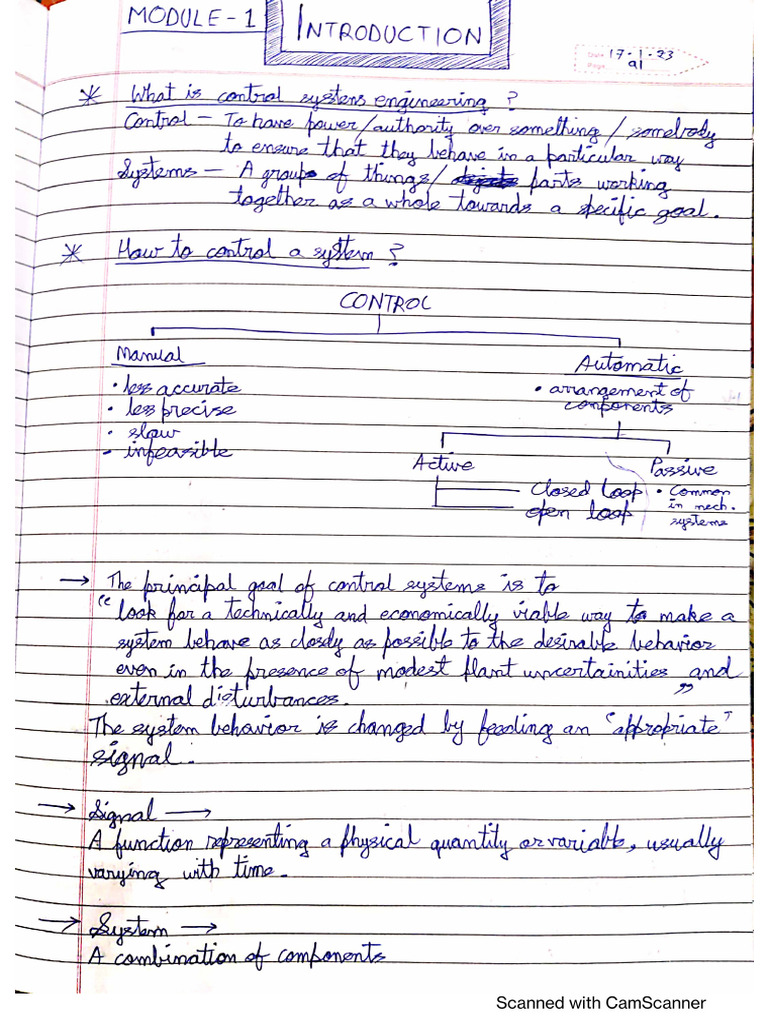 MODULE-1 INTRODUCTION
Date 17-1-23
Page 01
* What is control systems engineering?
Control – To have power/authority over something/somebody
to ensure that they behave in a particular way
Systems – A group of things/ parts working
together as a whole towards a specific goal.
* How to control a system?
CONTROL
Manual
• less accurate
• less precise
• slow
- infeasible
Automatic
• arrangement of
components
Active
Closed loop
open loop
Passive
• Common
in mech.
systems
→ The principal goal of control systems is to
“look for a technically and economically viable way to make a
system behave as closely as possible to the desirable behavior
even in the presence of modest plant uncertainities and
external disturbances.”
The system behavior is changed by feeding an "appropriate"
signal.
→ Signal →
A function representing a physical quantity or variable, usually
varying with time.
→ System →
A combination of components
Scanned with CamScanner